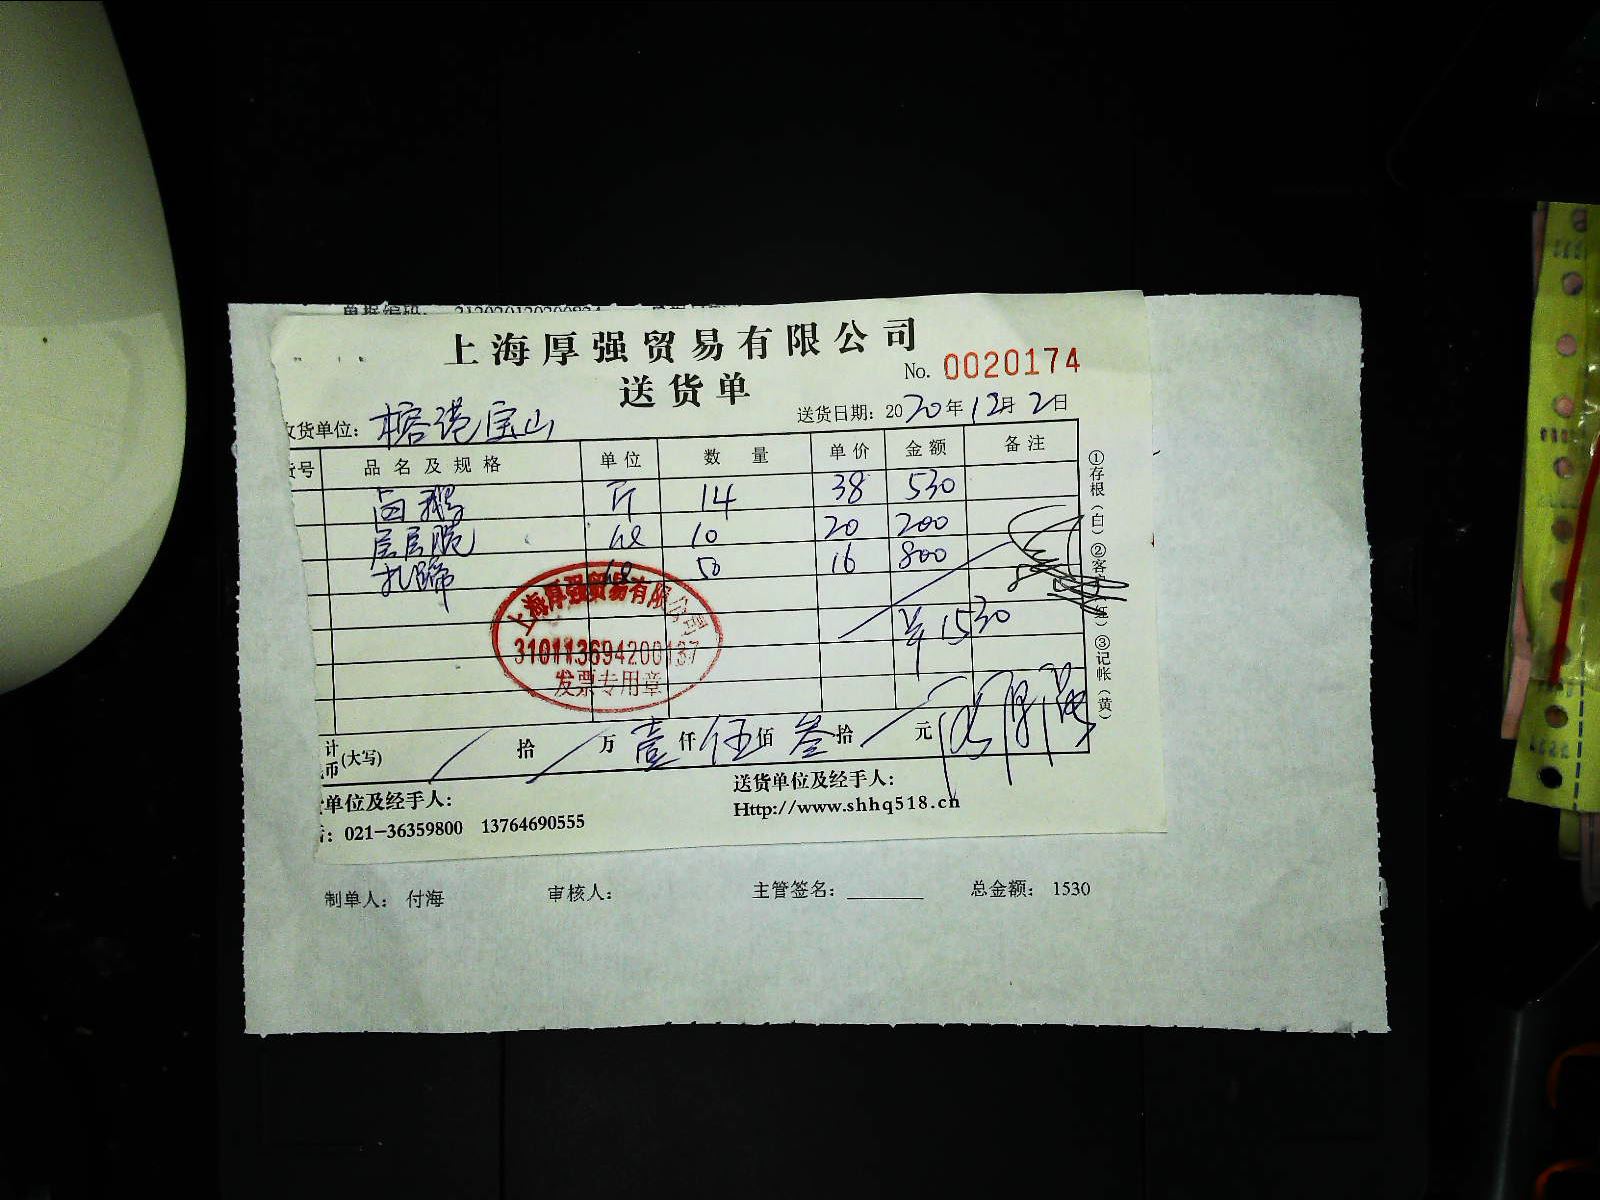 单据编码：
上海厚强贸易有限公司
No. 0020174
送货单
收货单位：榕港宝山
送货日期：2020年12月2日
货号 品名及规格 单位 数量 单价 金额 备注
卤鹅 斤 14 38 530
层层脆 10 20 200
扎蹄 50 16 800
¥1530
①存根（白）②客户（红）③记帐（黄）
上海厚强贸易有限公司
310113694200137
发票专用章
计 币 (大写) 拾 万 壹仟 伍佰 叁拾 元
单位及经手人：
送货单位及经手人：
：021-36359800 13764690555
Http://www.shhq518.cn
制单人：付海 审核人： 主管签名： 总金额：1530